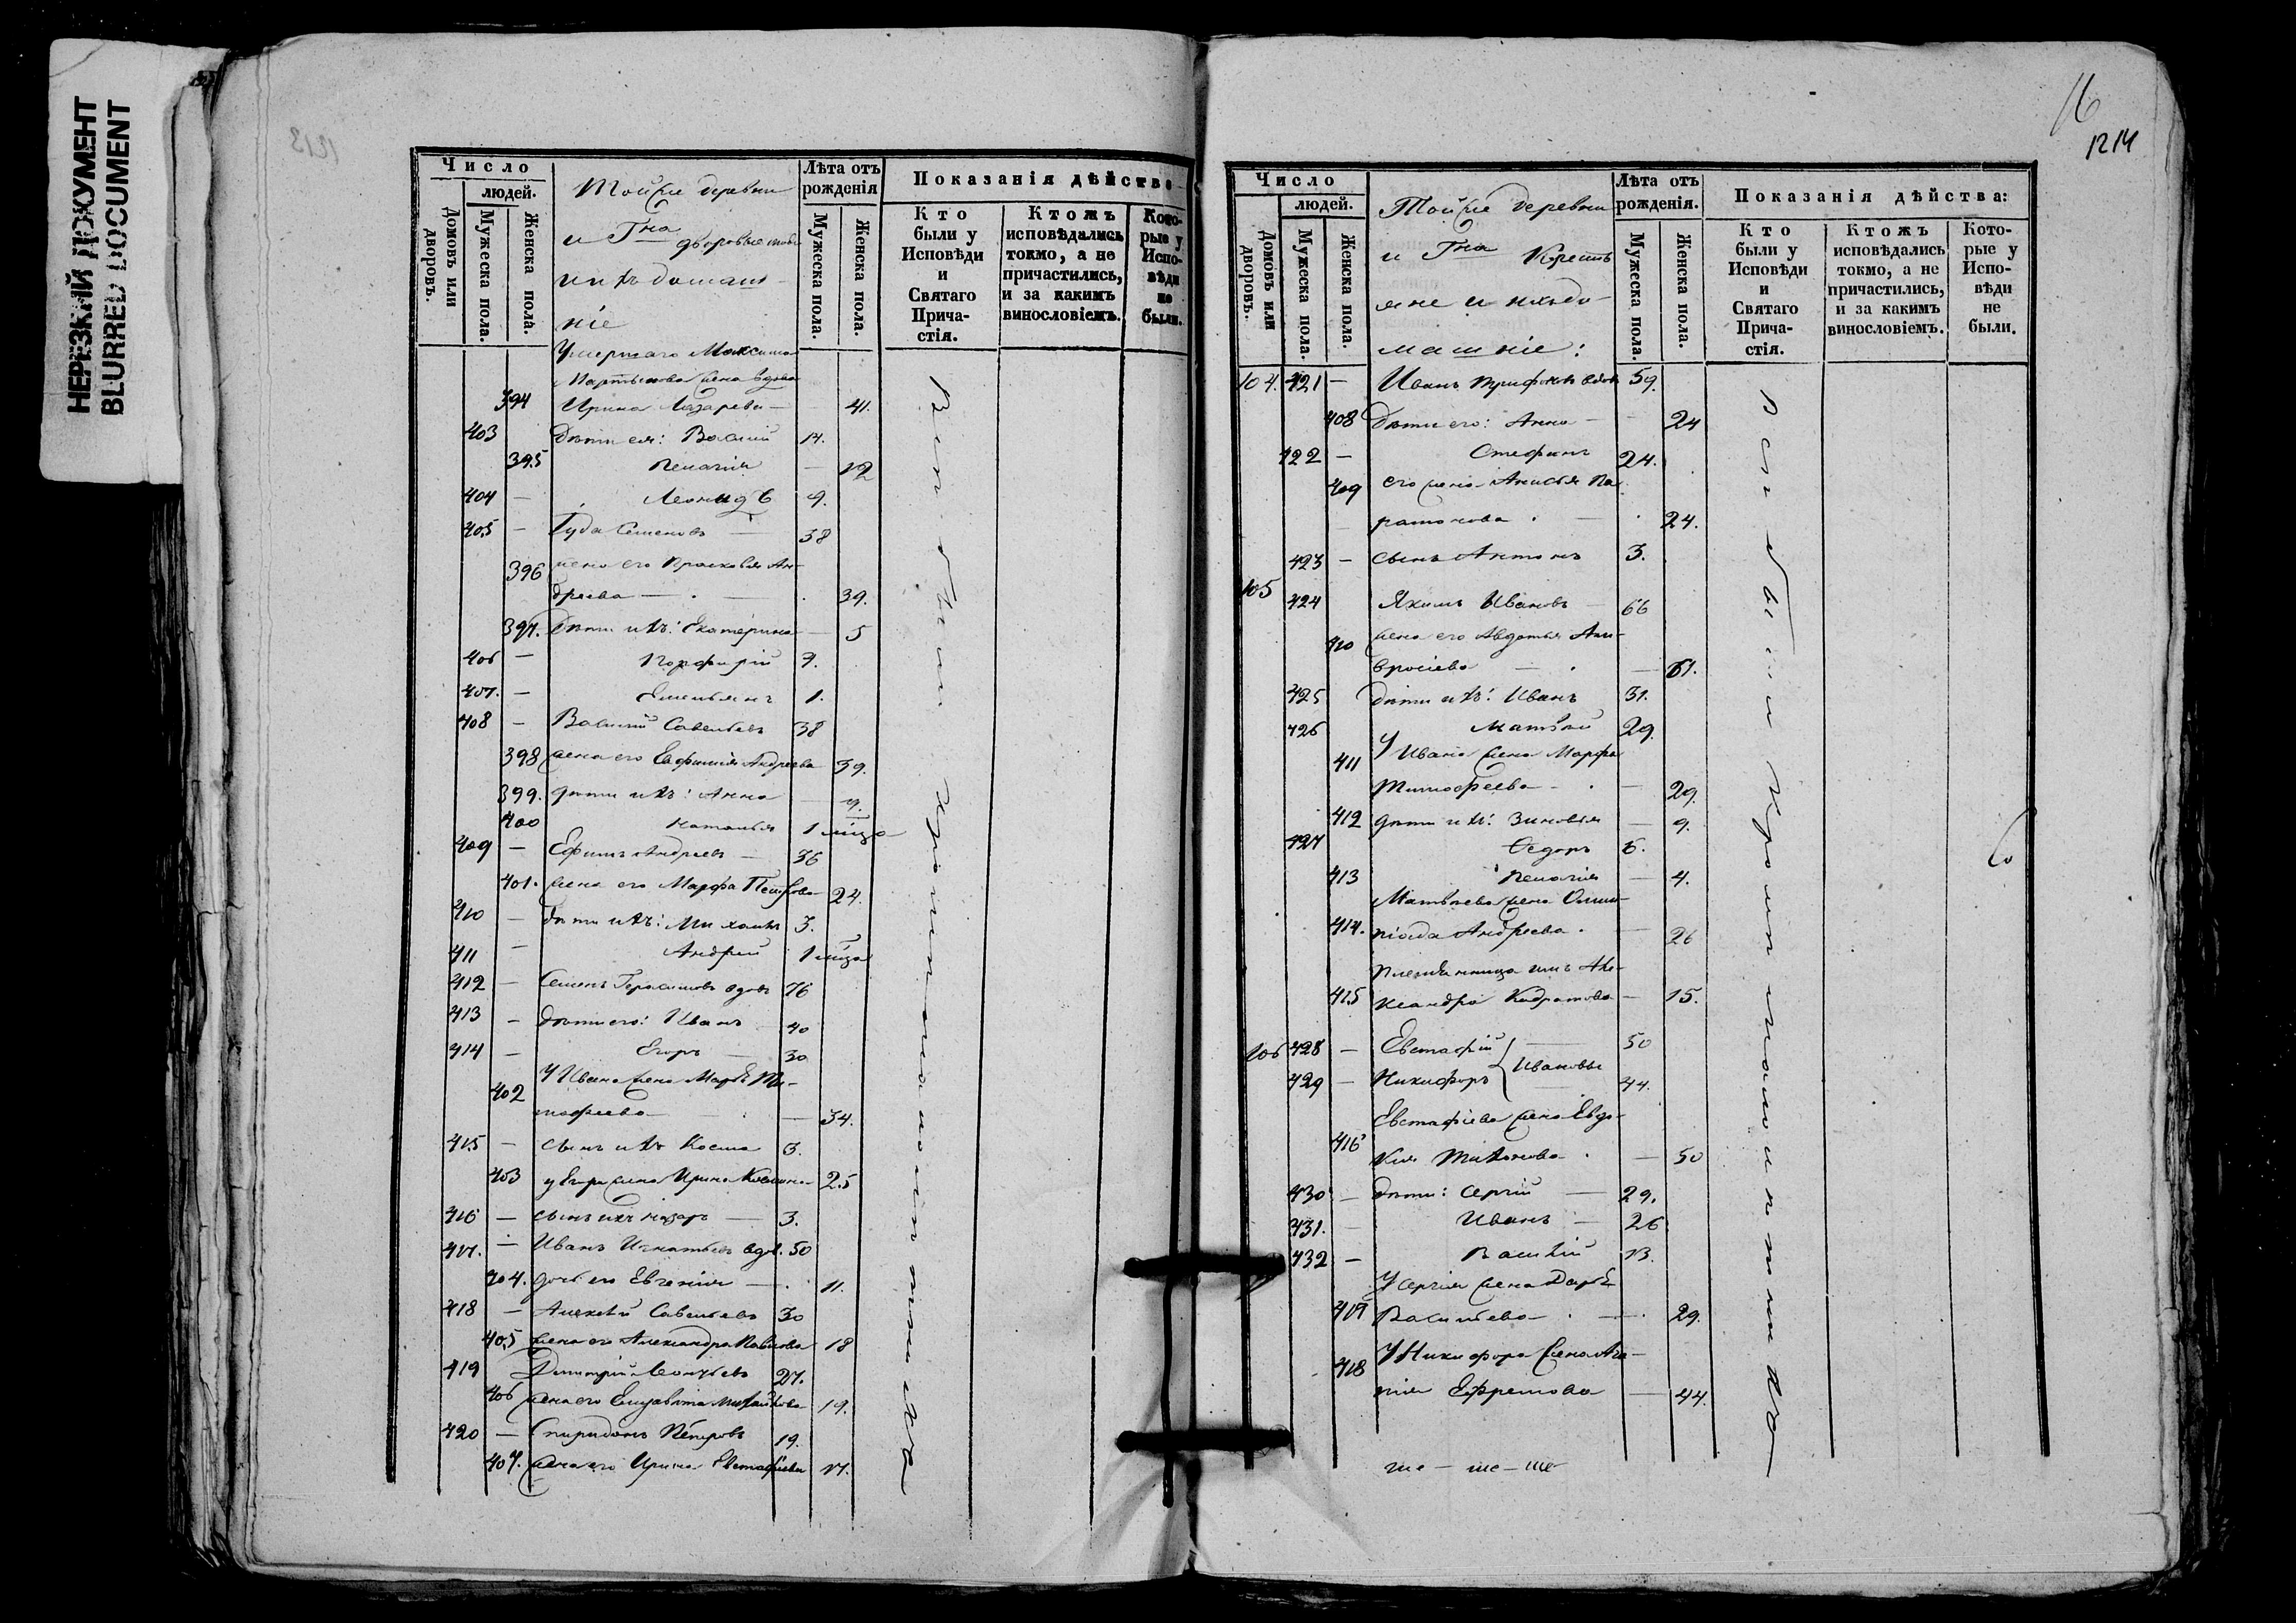 НЕРЕЗКИЙ ДОКУМЕНТ
BLURRED DOCUMENT
Число
людей.
Домовъ или дворовъ.
Мужеска пола.
Женска пола.
Тойже деревни
и Гна дворовые люди
ихъ домаш-
ніе
Лѣта отъ рожденія
Мужеска пола.
Женска пола.
Показанія дѣйства
Кто были у Исповѣди и Святаго Прича- стія.
Ктожъ исповѣдались токмо, а не причастились, и за какимъ винословіемъ.
Кото- рые у Испо- вѣди не были.
Умершаго Максима
Мартынова жена вдова
394 Ирина Лазарева — 41.
403 Дѣти ея: Василій 14.
395 Пелагия — 12
404 — Леонидъ 9.
405 — Гуда Семеновъ — 38
396 жена его Прасковья Ан-
дреева — 39.
397. Дѣти ихъ: Екатерина — 5
406 — Порфирій 7.
407. — Емельянъ 1.
408 — Василій Савельевъ 38
398 жена его Евфимия Андреева 39.
399. дѣти ихъ: Анна — 9.
400 Наталья 1 мѣца
409 — Ефимъ Андреевъ — 36
401. жена его Марфа Петрова 24.
410 — дѣти ихъ: Михаилъ 3.
411 — Андрей 1 мѣца
412 — Семенъ Герасимовъ вдовъ 76
413 — дѣти его: Иванъ 40
414 — Егоръ — 30
У Ивана жена Марья Ти-
402 мофеева — 34.
415 — сынъ ихъ Косма 3.
403 у Егора жена Ирина Космина 25
416 — сынъ ихъ Назаръ — 3.
417. — Иванъ Игнатьевъ вдов. 50
404. дочь его Евгения — 11.
418 — Алексѣй Савельевъ 30
405 жена его Александра Павлова 18
419 Димитрій Леонтьевъ 27.
406 жена его Елизавета Михайлова 19.
420 — Спиридонъ Петровъ 19.
407. жена его Ирина Евстафіева 17.
16
1214
Число
людей.
Домовъ или дворовъ.
Мужеска пола.
Женска пола.
Тойже деревни
и Гна Кресть
яне и ихъ до-
машніе:
Лѣта отъ рожденія.
Мужеска пола.
Женска пола.
Показанія дѣйства:
Кто были у Исповѣди и Святаго Прича- стія.
Ктожъ исповѣдались токмо, а не причастились, и за какимъ винословіемъ.
Кото- рые у Испо- вѣди не были.
104. 421 — Иванъ Трифоновъ вдовъ 59.
408 Дѣти его: Анна — 24
422 — Стефанъ 24.
409 его жена Анисья Па
рамонова — 24.
423 — сынъ Антонъ 3.
105 424 Якимъ Ивановъ — 66
410 жена его Авдотья Ам-
вросіева — 61.
425 дѣти ихъ: Иванъ 31.
426 Матвѣй 29.
411 У Ивана жена Марфа
Тимофеева — 29.
412 дѣти ихъ: Зиновья — 9.
427 Ѳедоръ 6.
413 Пелагия — 4.
Матвѣева жена Олим-
414. піада Андреева — 26
племянница имъ Але-
415 ксандра Кадратова — 15.
106 428 — Евстафій 50
Ивановы
429 — Никифоръ 44.
Евстафіева жена Евдо-
416 кия Тихонова — 50
430 — дѣти: Сергій — 29.
431. — Иванъ — 26
432 — Василій 13.
У Сергия жена Дарья
417 Васильева — 29.
У Никифора жена Ага-
418 пия Ефремова — 44.